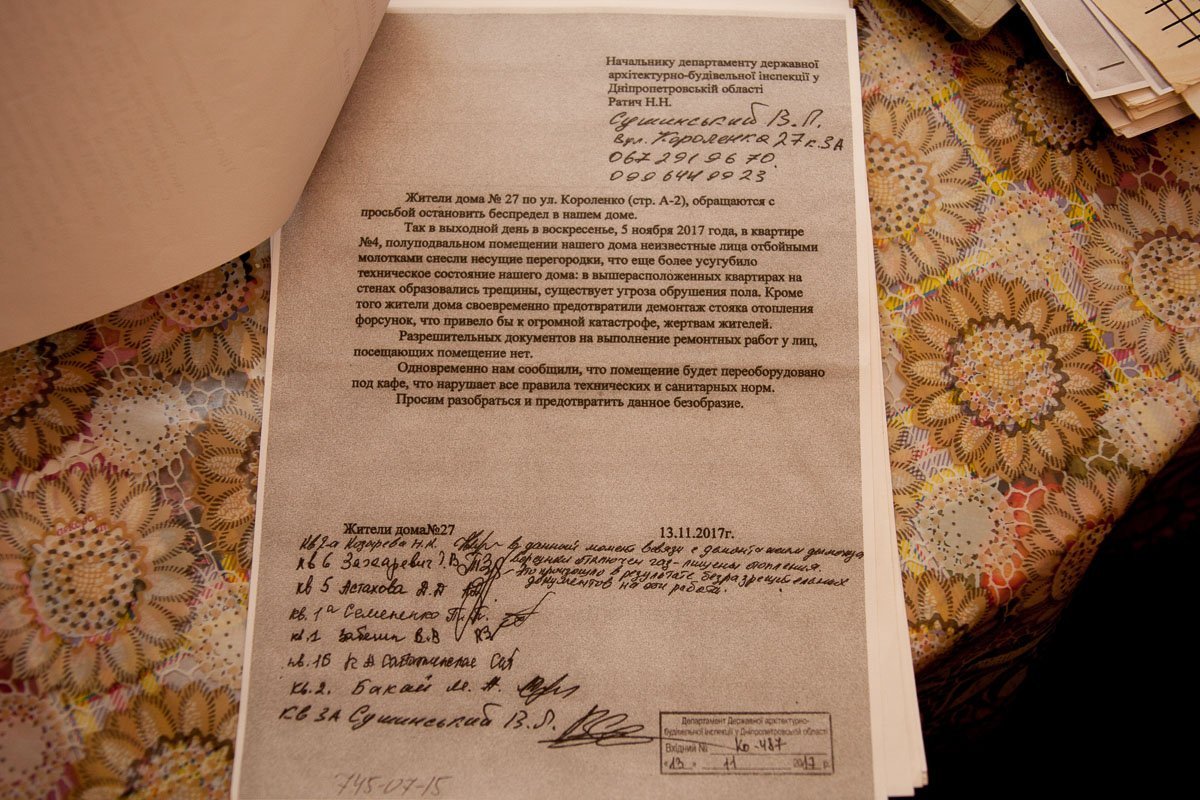 Начальнику департаменту державної
архітектурно-будівельної інспекції у
Дніпропетровській області
Ратич Н.Н.
Сушинський В.П.
вул. Короленка 27 к.3А
067 291 96 70
099 644 99 23
Жители дома № 27 по ул. Короленко (стр. А-2), обращаются с
просьбой остановить беспредел в нашем доме.
Так в выходной день в воскресенье, 5 ноября 2017 года, в квартире
№4, полуподвальном помещении нашего дома неизвестные лица отбойными
молотками снесли несущие перегородки, что еще более усугубило
техническое состояние нашего дома: в вышерасположенных квартирах на
стенах образовались трещины, существует угроза обрушения пола. Кроме
того жители дома своевременно предотвратили демонтаж стояка отопления
форсунок, что привело бы к огромной катастрофе, жертвам жителей.
Разрешительных документов на выполнение ремонтных работ у лиц,
посещающих помещение нет.
Одновременно нам сообщили, что помещение будет переоборудовано
под кафе, что нарушает все правила технических и санитарных норм.
Просим разобраться и предотвратить данное безобразие.
Жители дома№27 13.11.2017г.
Н.К. В данный момент в связи с демонтажем дымохода
кв 6 Захаревич В отключен газ-лишены отопления.
Это произошло в результате безразрешительных
кв 5 Астахова А.А документов на эти работы.
кв. 1а Семененко Т.
кв.1 В.В
кв. 1Б
кв. 2. Бакай М. А.
кв 3А Сушинський В.П.
Департамент Державної архітектурно-
будівельної інспекції у Дніпропетровській області
Вхідний № Ко-487
«13» 11 2017 р.
745-07-15